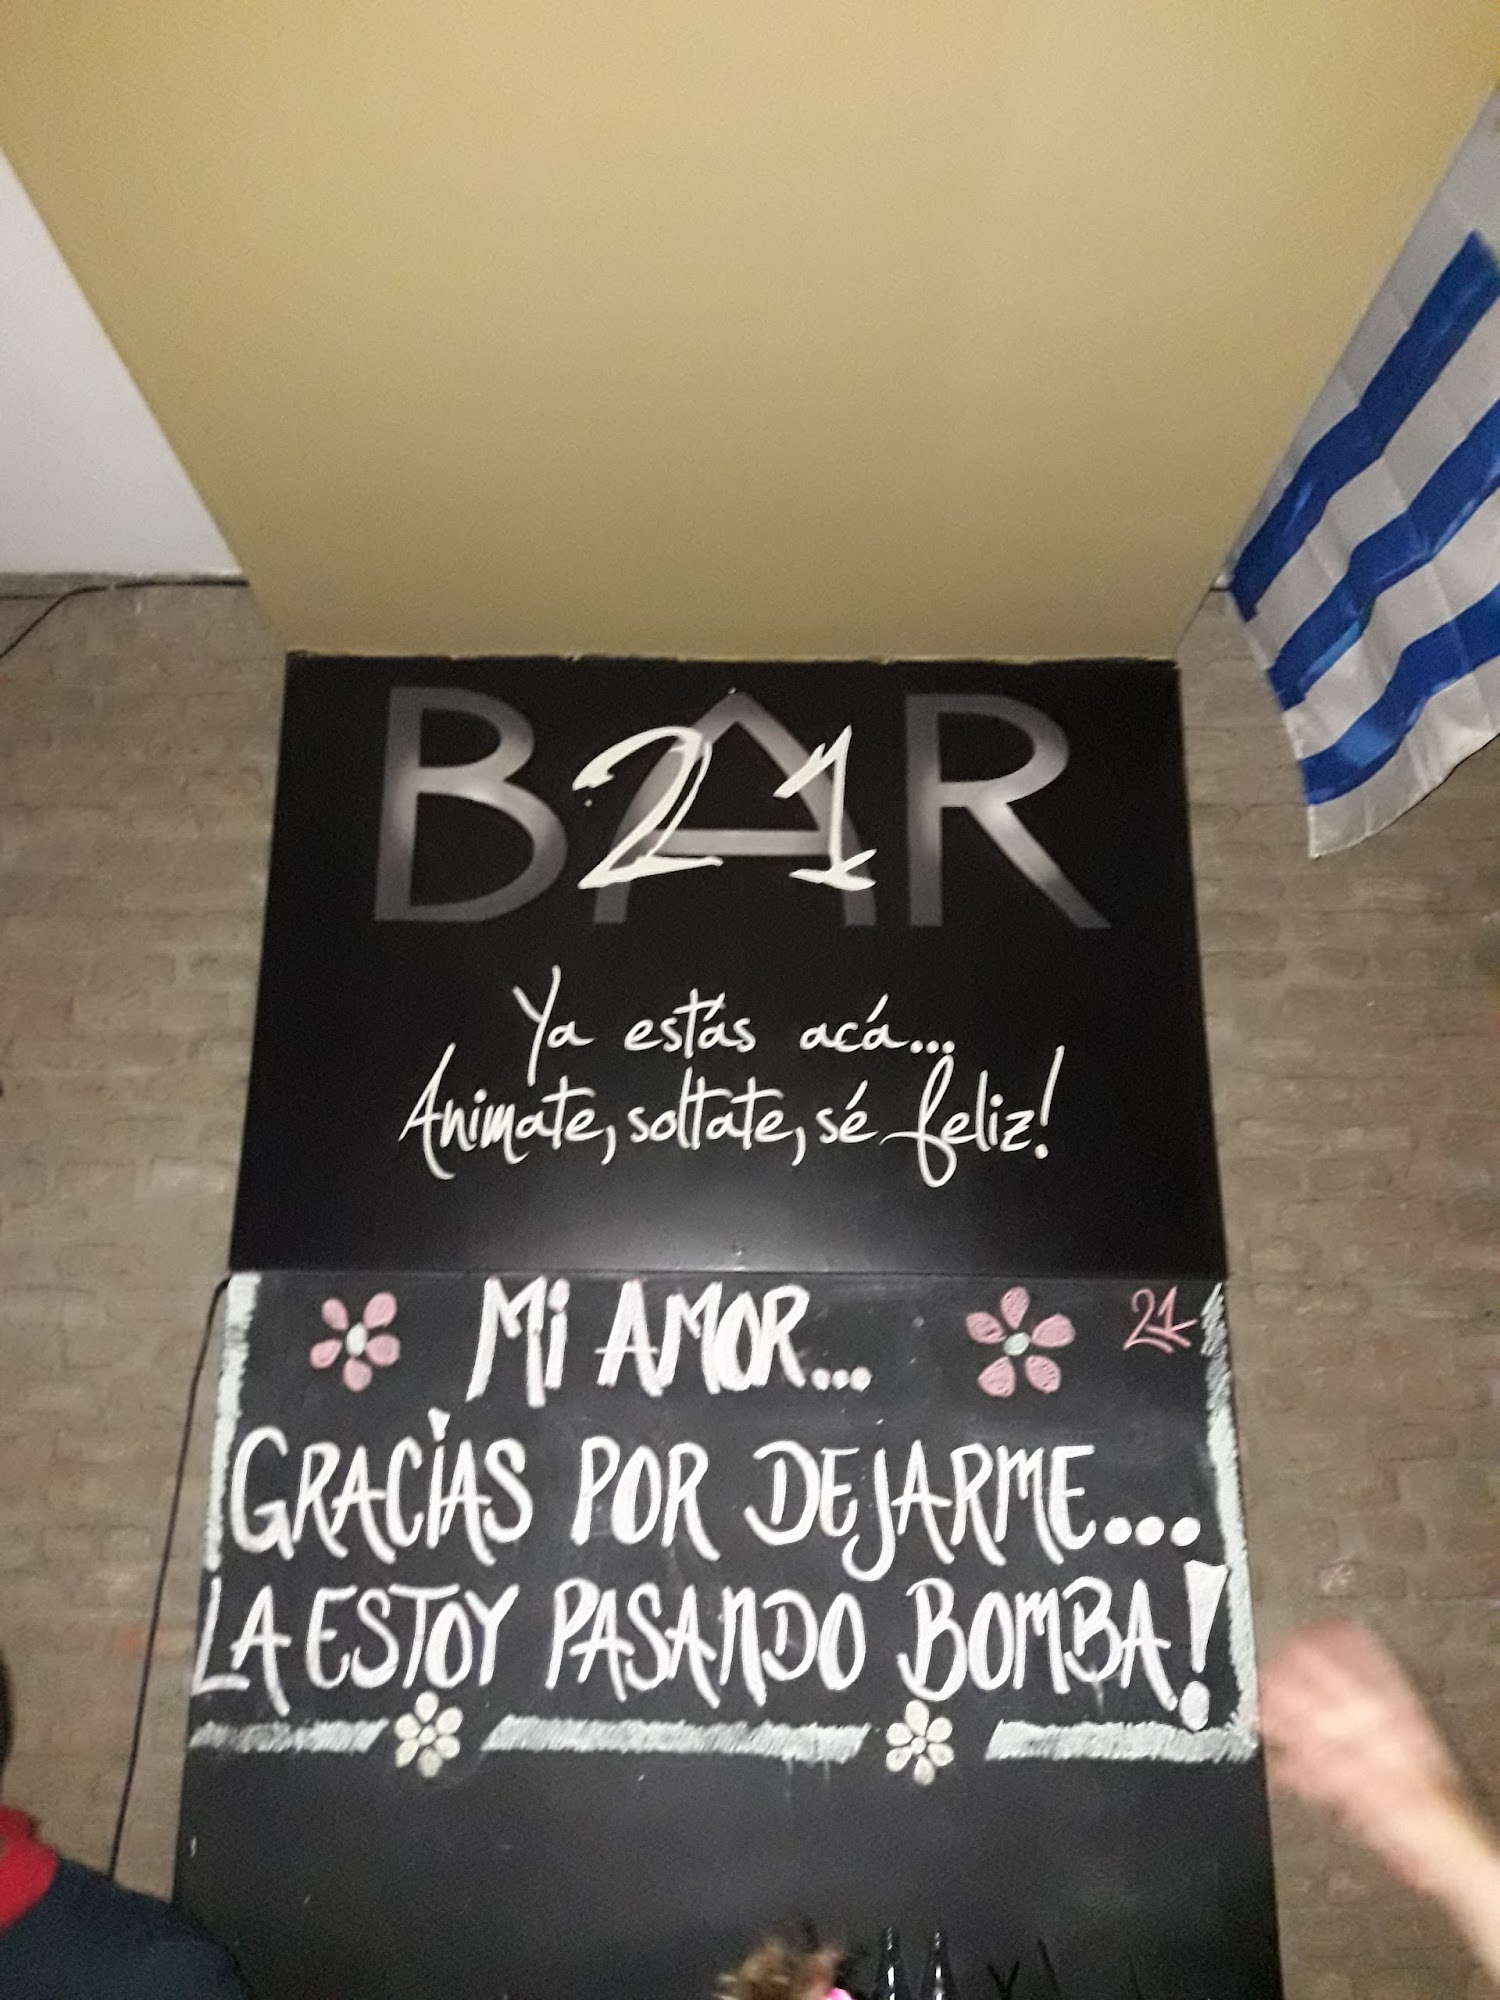 BAR
21
Ya estás acá...
Animate, soltate, sé feliz!
Mi AMOR...
21
GRACiAS POR DEJARME...
LA ESTOY PASANDO BOMBA!